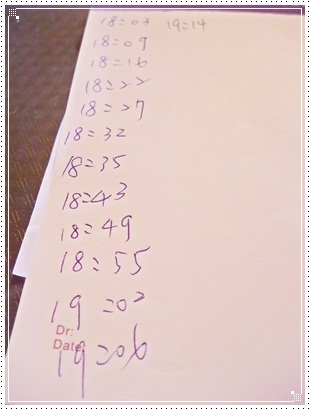 18=03 19=14
18=09
18=16
18=22
18=27
18=32
18=35
18=43
18=49
18=55
19=02
Dr:
Date:
19=06